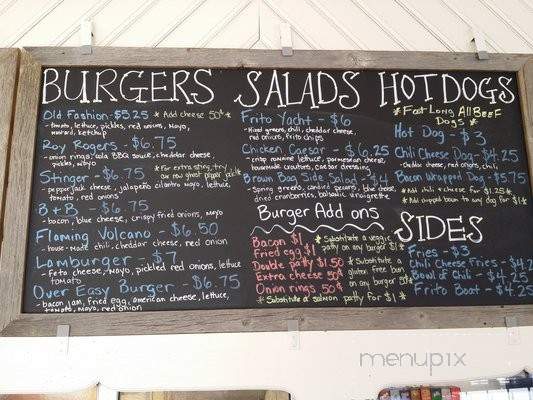 BURGERS
Old Fashion - $5.25 * Add cheese 50¢ *
- tomato, lettuce, pickles, red onions, mayo,
mustard, ketchup
Roy Rogers - $6.75
- onion rings, cola BBQ sauce, cheddar cheese,
pickles, mayo
Stinger - $6.75
* For extra sting try
our new ghost pepper jack *
- pepper jack cheese, jalapeño cilantro mayo, lettuce,
tomato, red onions
B + B - $6.75
- bacon, blue cheese, crispy fried onions, mayo
Flaming Volcano - $6.50
- house-made chili, cheddar cheese, red onion
Lamburger - $7
- Feta cheese, mayo, pickled red onions, lettuce
tomato
Over Easy Burger - $6.75
- bacon jam, fried egg, american cheese, lettuce,
tomato, mayo, red onion
SALADS
Frito Yacht - $6
- Mixed greens, chili, cheddar cheese,
red onions, frito chips
Chicken Caesar - $6.25
- crisp romaine lettuce, parmesean cheese,
homemade croutons, caesar dressing
Brown Bag Side Salad - $4
- Spring greens, candied pecans, blue cheese,
dried cranberries, balsamic vinaigrette
Burger Add ons
Bacon $1
Fried egg $1
Double patty $1.50
Extra cheese 50¢
Onion rings 50¢
* Substitute a veggie
patty on any burger $1 *
* Substitute a
gluten free bun
on any burger 50¢ *
* Substitute a salmon patty for $1 *
HOT DOGS
* Foot Long All Beef
Dogs *
Hot Dog - $3
Chili Cheese Dog - $4.25
- Cheddar cheese, red onions, chili
Bacon Wrapped Dog - $5.75
* Add chili + cheese for $1.25 *
* Add wrapped bacon to any dog for $1 *
SIDES
Fries - $3
Chili Cheese Fries - $4.2
Bowl of Chili - $4.25
Frito Boat - $4.25
menupix